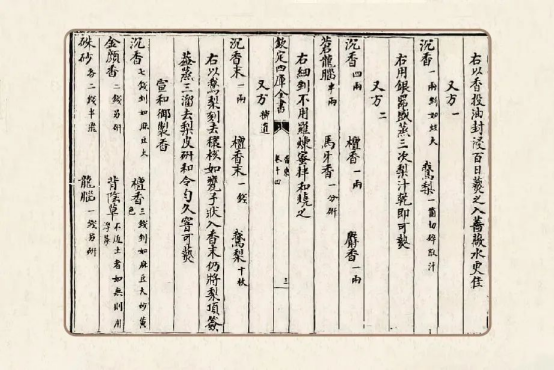 右以香投油封浸百日爇之入薔薇水更佳
又方一
沉香一兩剉如炷大 鵞梨一箇切碎取汁
右用銀器盛蒸三次梨汁乾即可爇
又方二
沉香四兩 檀香一兩 麝香一兩
茗龍腦半兩 馬牙香一分研
右細剉不用羅煉蜜拌和燒之
欽定四庫全書 香乘 卷十四 三
又方補遺
沉香末一兩 檀香末一錢 鵞梨十枚
右以鵞梨刻去穰核如甕子狀入香末仍將梨頂簽
蓋蒸三溜去梨皮研和令勻久窨可爇
宣和御製香
沉香七錢剉如麻豆大 檀香三錢剉如麻豆大炒黃色
金顏香二錢另研 背陰草不近土者如無則用浮萍
硃砂各二錢半飛 龍腦一錢另研